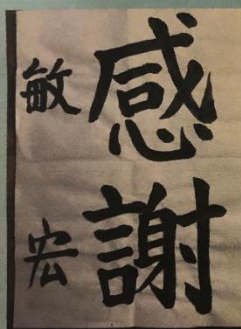 感謝
敏宏